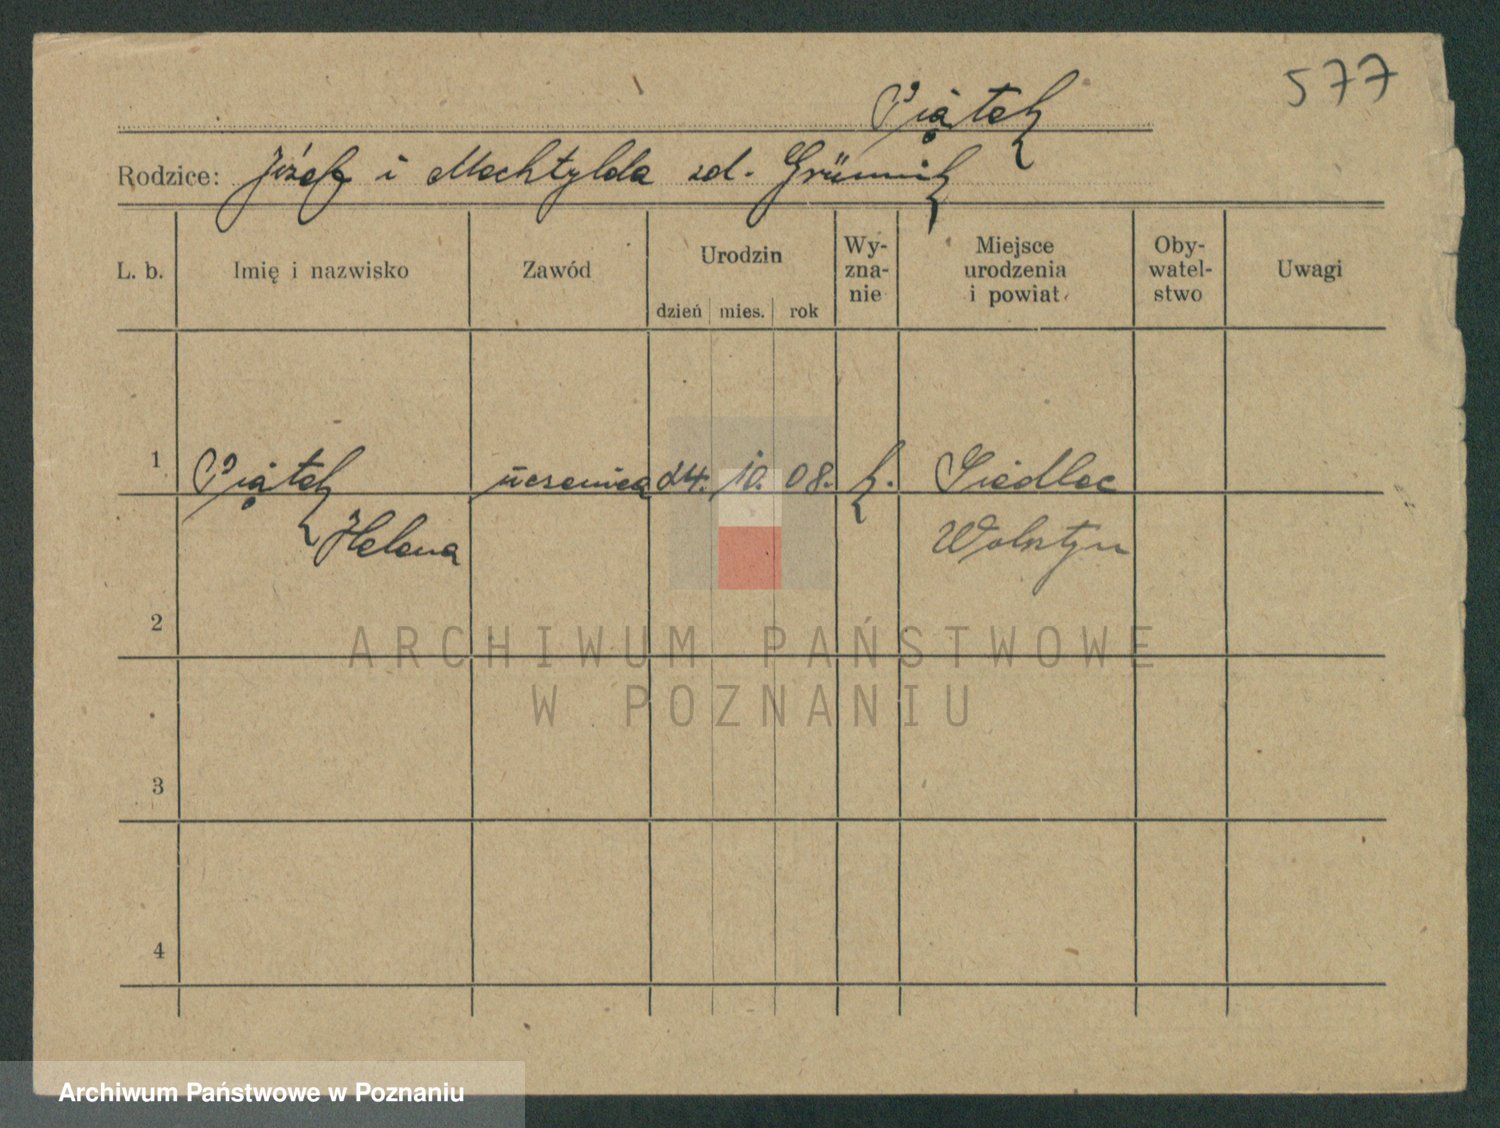 577
Piątek
Rodzice: Józef i Mechtylda zd.
L. b. Imię i nazwisko Zawód Urodzin dzień mies. rok Wy-zna-nie Miejsce urodzenia i powiat Oby-watel-stwo Uwagi
1 Piątek uczenica 24. 10. 08. k. Siedlec
Helena Wolsztyn
2
3
4
ARCHIWUM PAŃSTWOWE
W POZNANIU
Archiwum Państwowe w Poznaniu